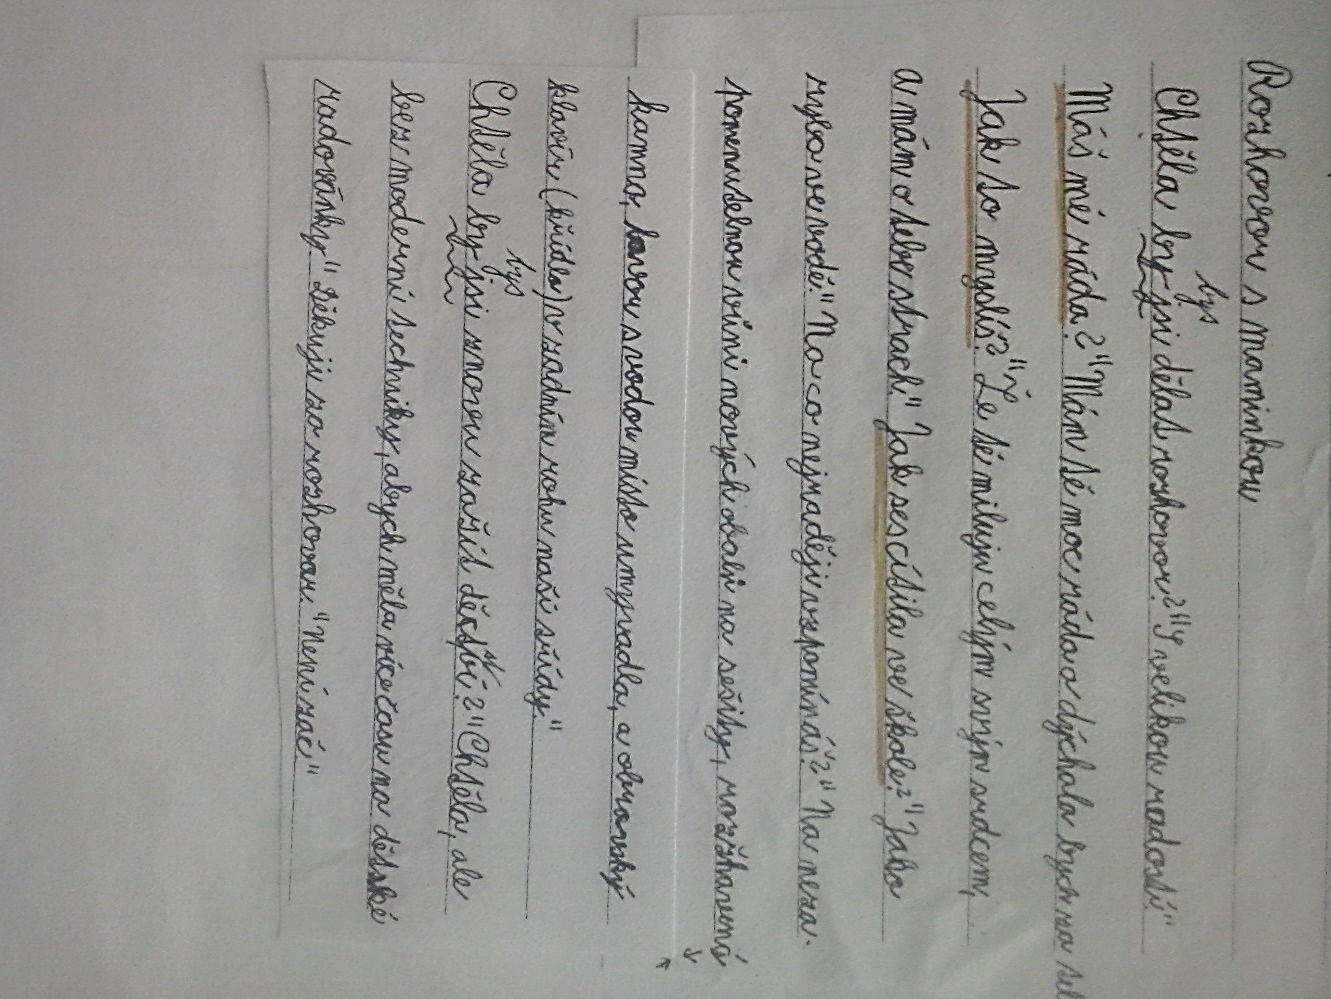 Rozhovor s maminkou
bys
Chtěla by jsi dělat rozhovor?" "S velikou radostí"
Máš mě ráda?" "Mám tě moc ráda a dýchala bych za teb
Jak to myslíš?" "Že tě miluju celým svým srdcem,
a mám o tebe strach." Jak ses cítila ve škole?" "Jako
ryba ve vodě." Na co nejraději vzpomínáš?" "Na neza-
pomenutelnou vůni nových obalů na sešity, rozžhavená
kamna, kovou s vodou místo umyvadla, a obrovský
klavír (křídlo) v zadním rohu naší třídy."
bys
Chtěla by jsi znovu zažít dětství?" "Chtěla, ale
bez moderní techniky, abych měla více času na dětské
radovánky" Děkuji za rozhovor. "Není zač."